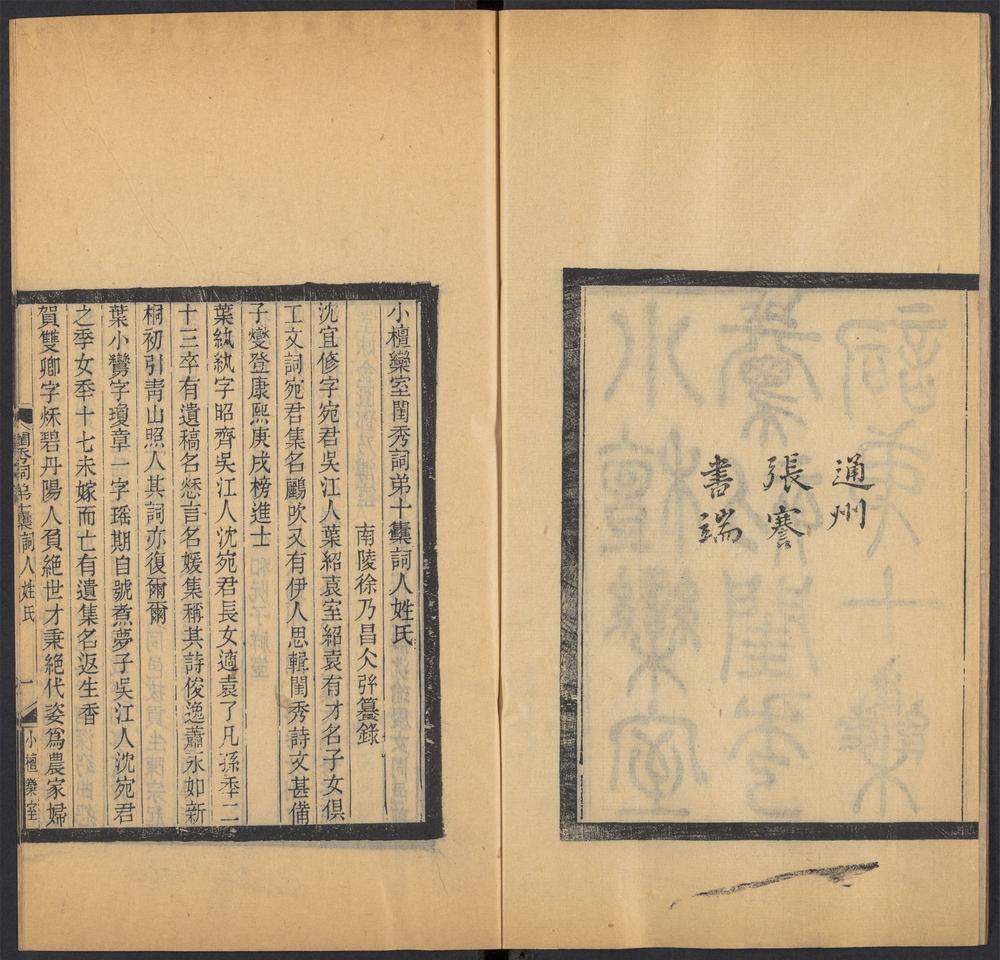 通州
張謇
書端
小檀欒室閨秀詞弟十集詞人姓氏
南陵徐乃昌仌弜籑錄
沈宜修字宛君吳江人葉紹袁室紹袁有才名子女俱
工文詞宛君集名鸝吹又有伊人思輯閨秀詩文甚備
子燮登康熙庚戌榜進士
葉紈紈字昭齊吳江人沈宛君長女適袁了凡孫秊二
十三卒有遺稿名愁言名媛集稱其詩俊逸蕭永如新
桐初引靑山照人其詞亦復爾爾
葉小鸞字瓊章一字瑤期自號煮夢子吳江人沈宛君
之季女秊十七未嫁而亡有遺集名返生香
賀雙卿字秌碧丹陽人負絕世才秉絕代姿爲農家婦
閨秀詞弟十集詞人姓氏
一
小檀欒室